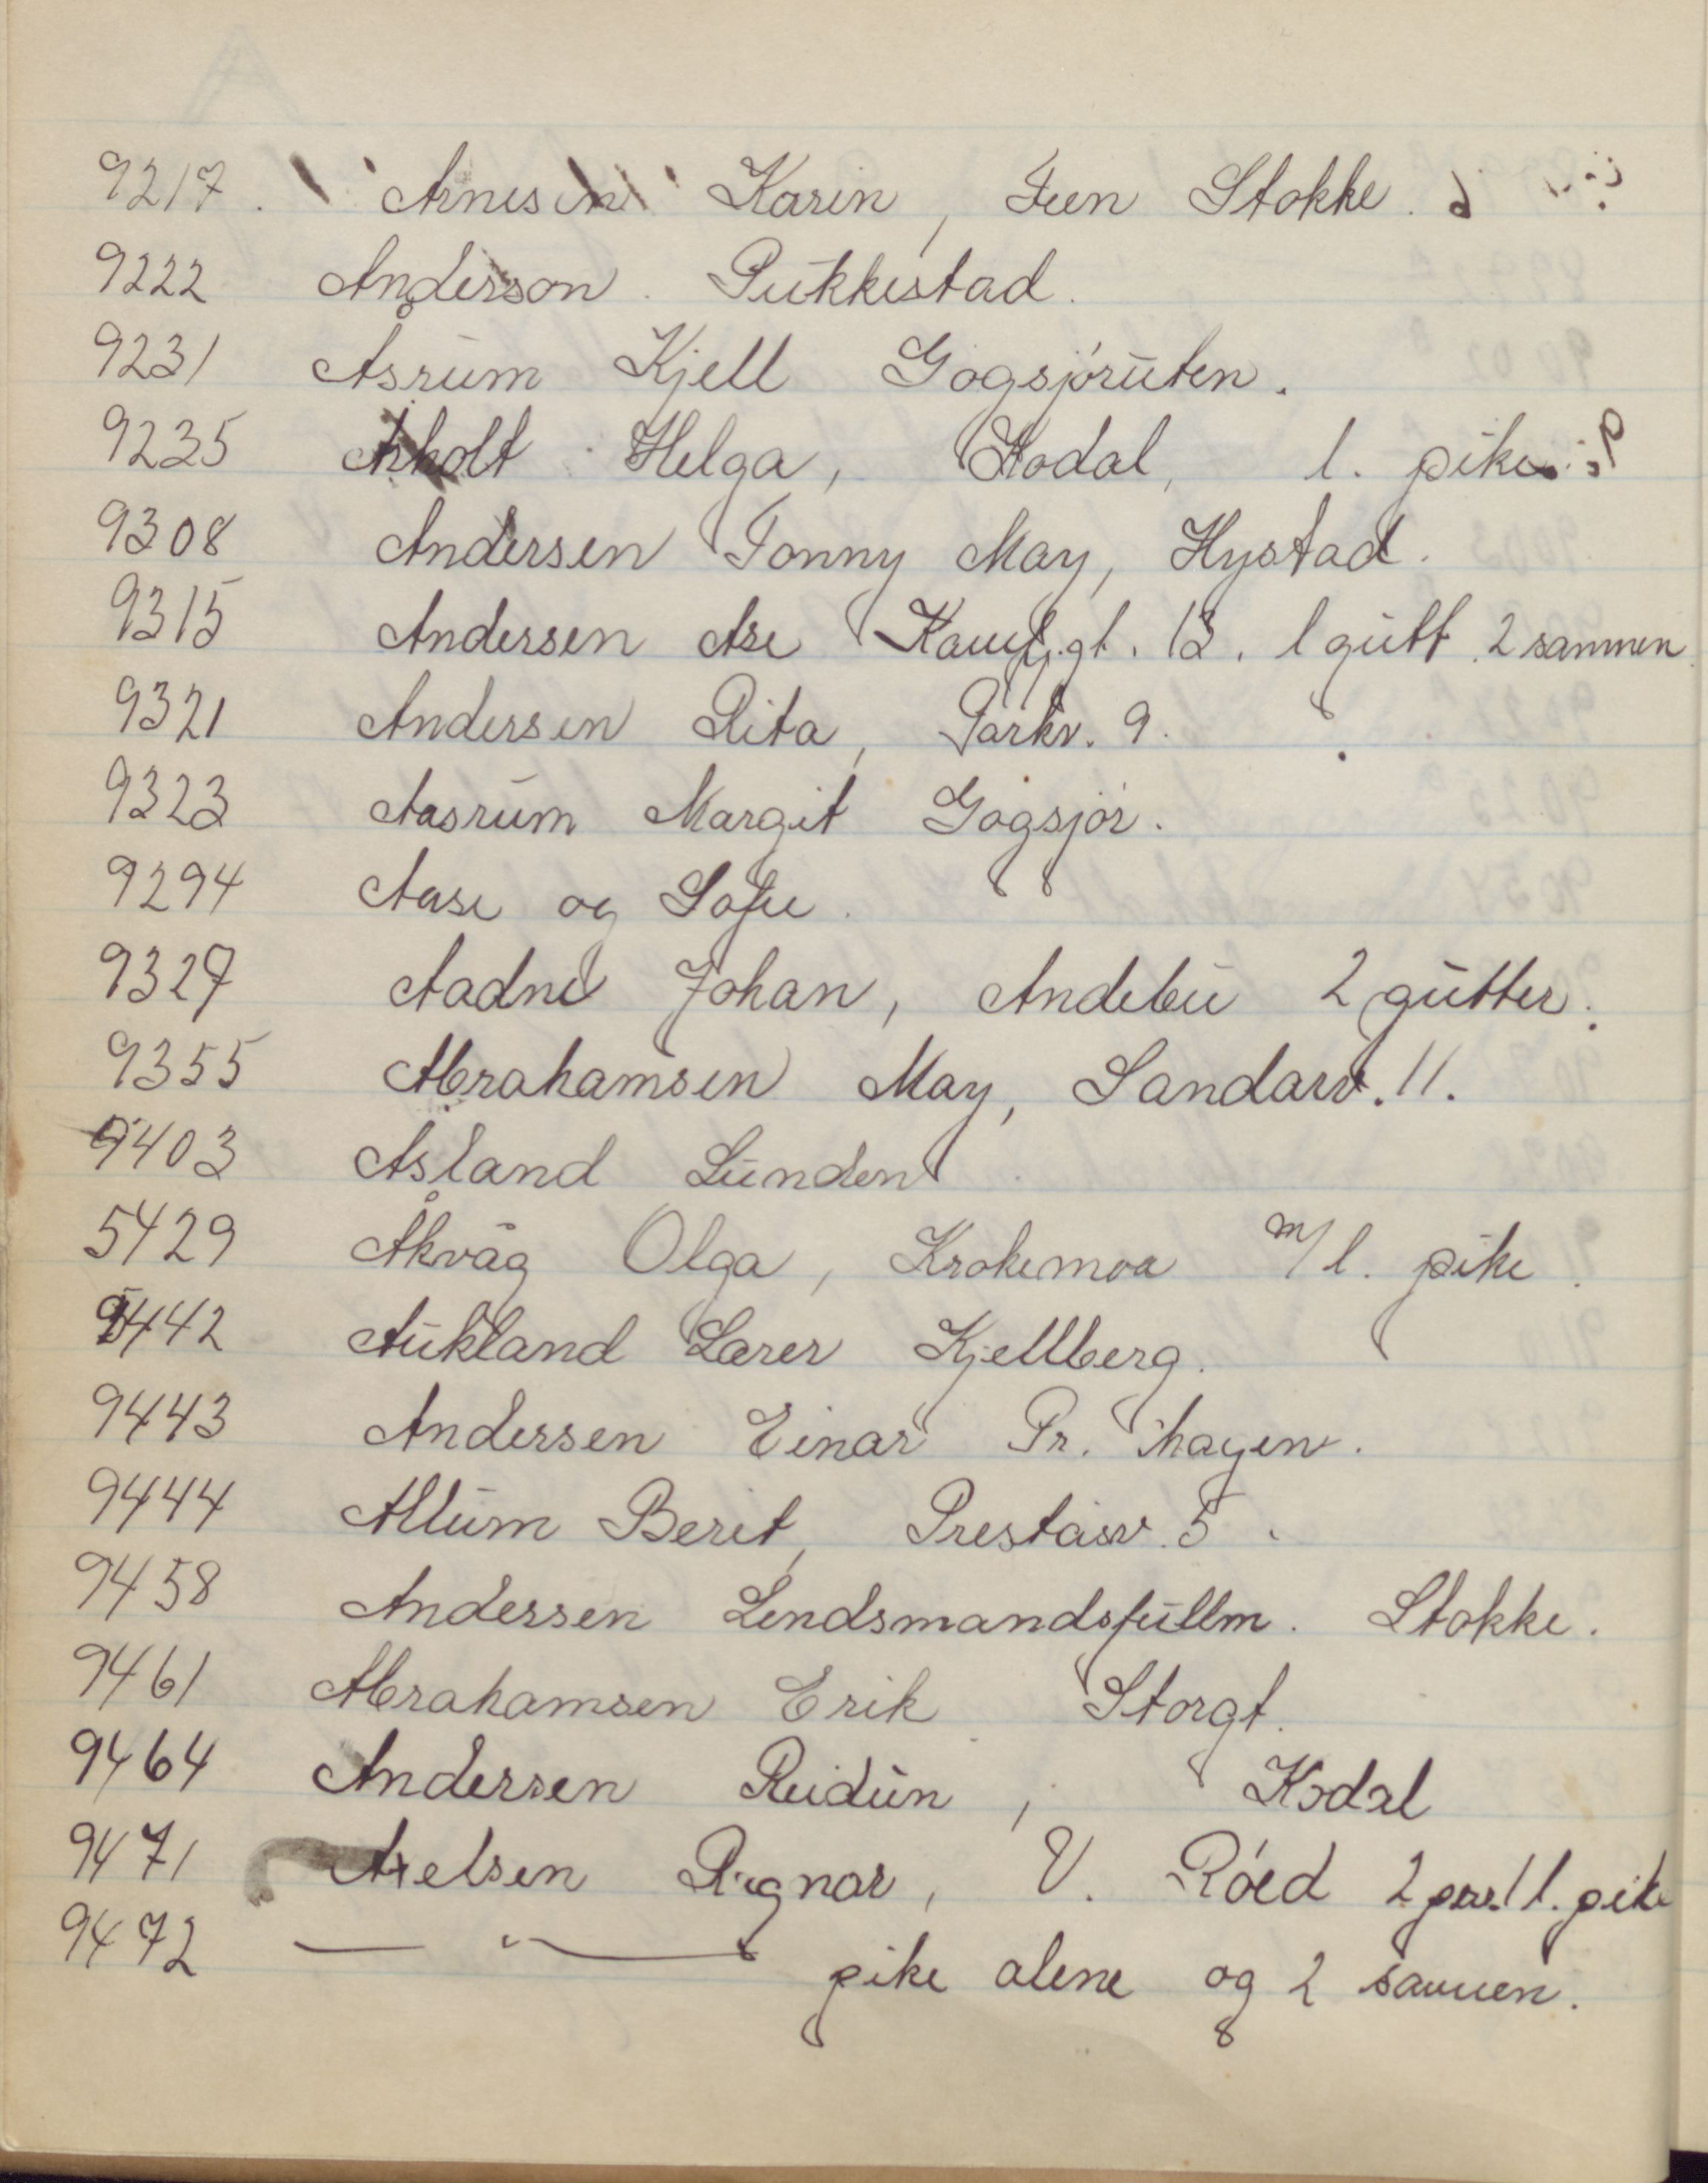 9217. Arnesen Karin, Fen Stokke.
9222 Anderson. Pukkestad.
9231 Åsrum Kjell Gogsjøruten.
9235 Askolt Helga, Kodal, 1. pike
9308 Andersen Tonny May, Hystad.
9315 Andersen Åse Kamfj.gt. 13. 1 gutt 2 sammen
9321 Andersen Rita, Parkv. 9.
9323 Aasrum Margit Gogsjør.
9294 Aase og Sofie.
9327 Aadne Johan, Andebu 2 gutter.
9355 Abrahamsen May, Sandarv. 11.
9403 Åsland Lunden
5429 Åkvåg Olga, Krokemoa m/ 1. pike.
9442 Aukland Lærer Kjellberg.
9443 Andersen Einar Pr. hagen.
9444 Allum Berit, Preståsv. 5.
9458 Andersen Lendsmandsfullm. Stokke.
9461 Abrahamsen Erik Storgt.
9464 Andersen Reidun, Kodal
9471 Axelsen Ragnar, V. Röed 2 pers. 1 1. pike
9472 — " — pike alene og 2 sammen.